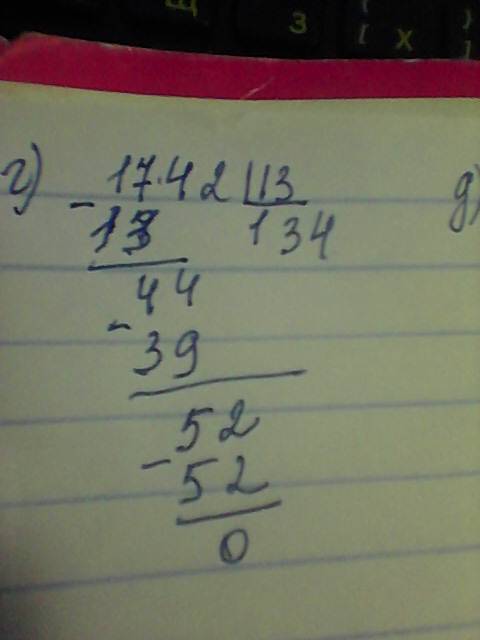 щ
З
[ Х ]
г) 17.42 |13 д)
- 13 134
44
- 39
52
- 52
0